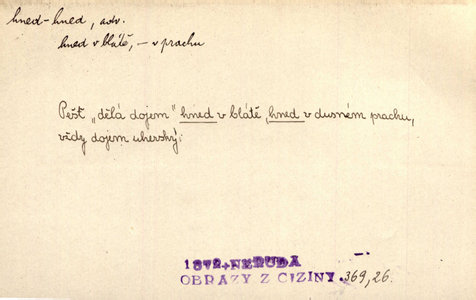 hned-hned, adv.
hned v blátě, – v prachu
Pešť „dělá dojem" hned v blátě, hned v dusném prachu,
vždy dojem uherský.
1872+NERUDA
OBRAZY Z CIZINY. 369, 26.